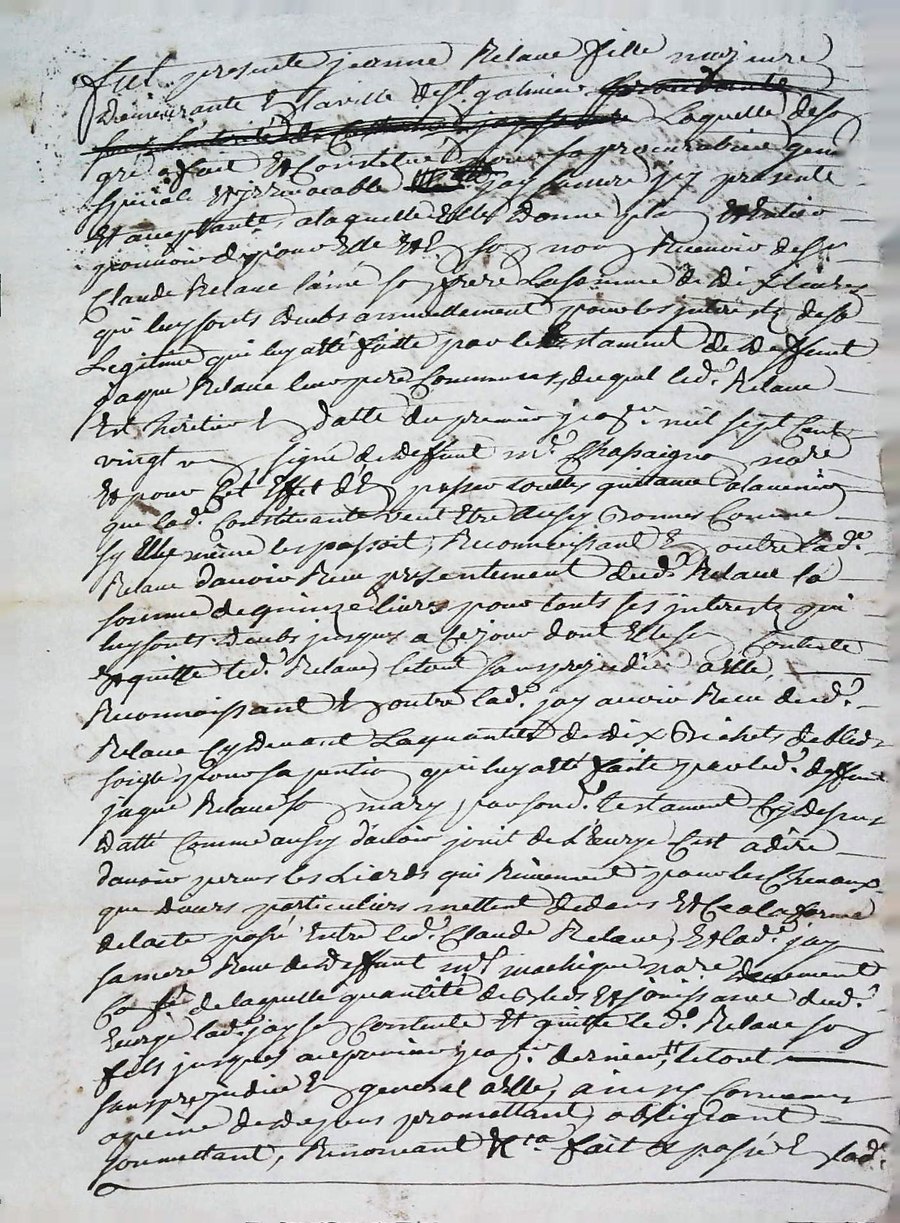 fut presente jeanne Relave fille majeure
Demeurante En laville de St galmier
Laquelle deso
gré a fait Et Constitué pour sa procuratrice gen
speciale Et jrrevocable jay sa mere jcy presente
Et acceptante, alaquelle Elle donne plain Et Entier
pouvoir de pour Elle Et En son nom Recevoir desr
Claude Relave l'aîné son frere La somme de dix Livres
qui luy sont deubs annuellement pour les jnterestz desa
Legitime qui luy a esté faitte par le testament de deffunt
jaque Relave leur pere Commun, duquel led.t Relave
Est héritier En datte du premier mil sept Cent
vingt signé de deffunt m.e Chapaigno nore
Et pour Cet Effet d'En passer touttes quittances alavenir
que lad.e Constituante veut Etre aussy Bonnes Comme
sy Elle même les passoit, Reconnoissant En outre lad.e
Relave d'avoir Reçu presentement dud.t Relave la
somme de quinze livres pour touts ses jnterestz qui
luy sont deubs jusques a Cejour dont Elle se Contente
Et quitte led.t Relave, letout sans prejudice a elle,
Reconnoissant En outre lad.e jay avoir Reçu dud.t
Relave Cydevant La quantité de dix Bichets de bled
soigle pour sa pention qui luy a esté faite par led.t deffunt
jaque Relave son mary par sond.t testament Cy dessus
datté Comme aussy d'avoir jouit de L'Eurye Cest adire
d'avoir perçus les Liards qui Reviennent pour les Chevaux
que divers particuliers mettent dedans Et Ce a la forme
de lacte passé Entre led.t Claude Relave, Et lad.e jay
sa mere Reçu de deffunt m.e nore
de laquelle quantité de Bled Et jouissance dud.t
Eurye lad.e jay se Contente Et quitte led.t Relave son
fils jusques au premier dernier, letout
sans prejudice En general a elle, ainsy Convenu
a peine de despens promettant, obligeant
soumettant, Renonceant &cta fait & passé En lad.e